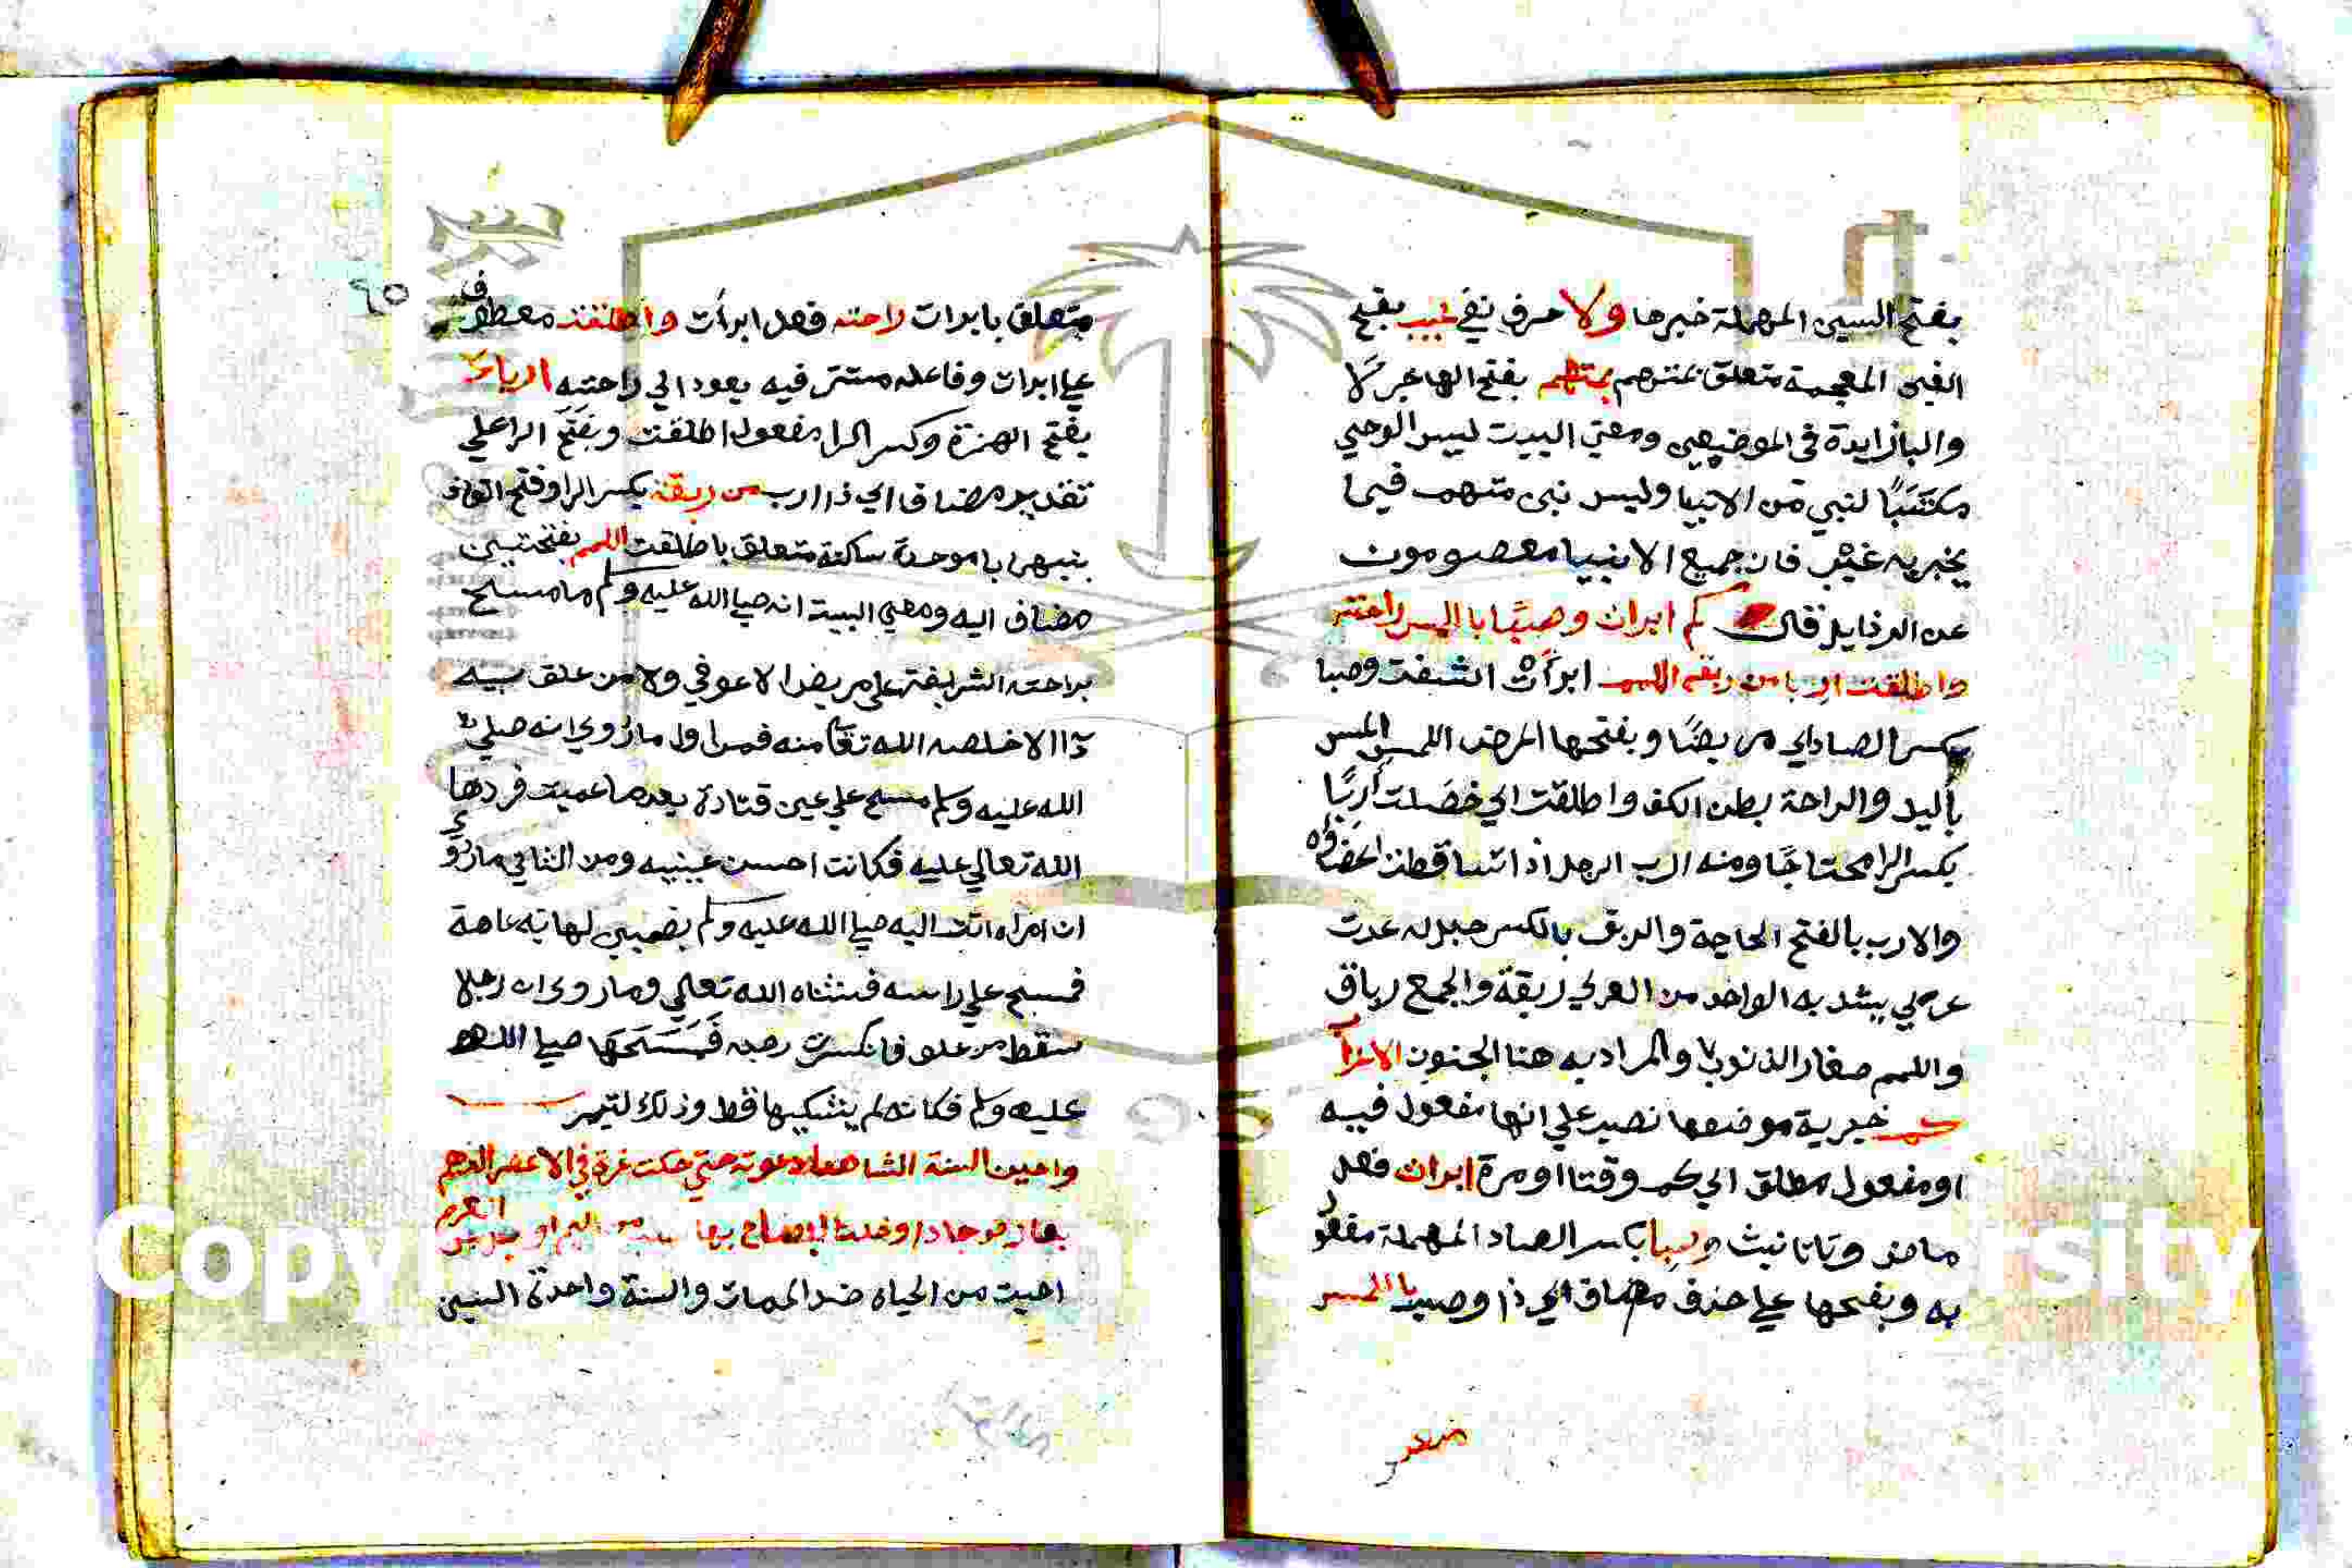 بفتح السين المهملة خبرها ولا حرف نفي غيب بفتح
الغين المعجمة متعلق بمتهم بمتهم بفتح الها خبر لا
والبا زايدة في الموضعين ومعني البيت ليس الوحي
مكتسبًا لنبي من الانبيا وليس نبي متهم فيما
يخبر به غيب فان جميع الانبيا معصومون
عن الرذايل قال كم ابرات وصبًا باللمس راحته
واطلقت اربا من ربقة اللمم ابرأت اشفت وصبا
بكسر الصاد اي مريضًا وبفتحها المرض اللمس المس
باليد والراحة بطن الكف واطلقت اي خصلت أربًا
بكسر الرا محتاجًا ومنه ارب الرجل اذا تساقطت اعضاوه
والارب بالفتح الحاجة والربق بالكسر حبل له عدت
عري يشد به الواحد من العري ربقة والجمع رباق
واللمم صغار الذنوب والمراد به هنا الجنون الاعراب
كم خبرية موضعها نصب علي انها مفعول فيه
او مفعول مطلق اي كم وقتا او مرة ابرات فعل
ماض وتا تانيث وصبا بكسر الصاد المهملة مفعول
به وبفتحها علي حذف مضاف اي ذا وصب باللمس
متعلق
٩٥
متعلق بابرات راحته فعل ابرأت واطلقت معطوف
علي ابرات وفاعله مستتر فيه يعود الي راحته اربا
بفتح الهمزة وكسر الرا مفعول اطلقت وبفتح الرا علي
تقدير مضاف اي ذا ارب من ربقة بكسر الرا وفتح القاف
بينهما با موحدة ساكنة متعلق باطلقت اللمم بفتحتين
مضاف اليه ومعني البيت انه صلي الله عليه وسلم ما مسح
براحته الشريفة علي مريض الا عوفي ولا من علق به
ذا الا خلصه الله تعا منه فمن اول ما روي انه صلي
الله عليه وسلم مسح علي عين قتادة بعد ما عميت فردها
الله تعالي عليه فكانت احسن عينيه ومن الثاني ما روي
ان امراه اتت اليه صلي الله عليه وسلم بصبي لها به عاهة
فمسح علي راسه فشفاه الله تعالي وما روي ان رجلا
سقط من علو فانكسرت رجله فمسحها صلي الله
عليه وسلم فكانه لم يشكيها قط وذلك لتيمر
واحيت السنة الشهبا دعوته حتي حكت غرة في الاعصر الدهم
بعارض جاد او خلت البطاح بها سيب من اليم او سيل من العرم
احيت من الحياه ضد الممات والسنة واحدة السنين